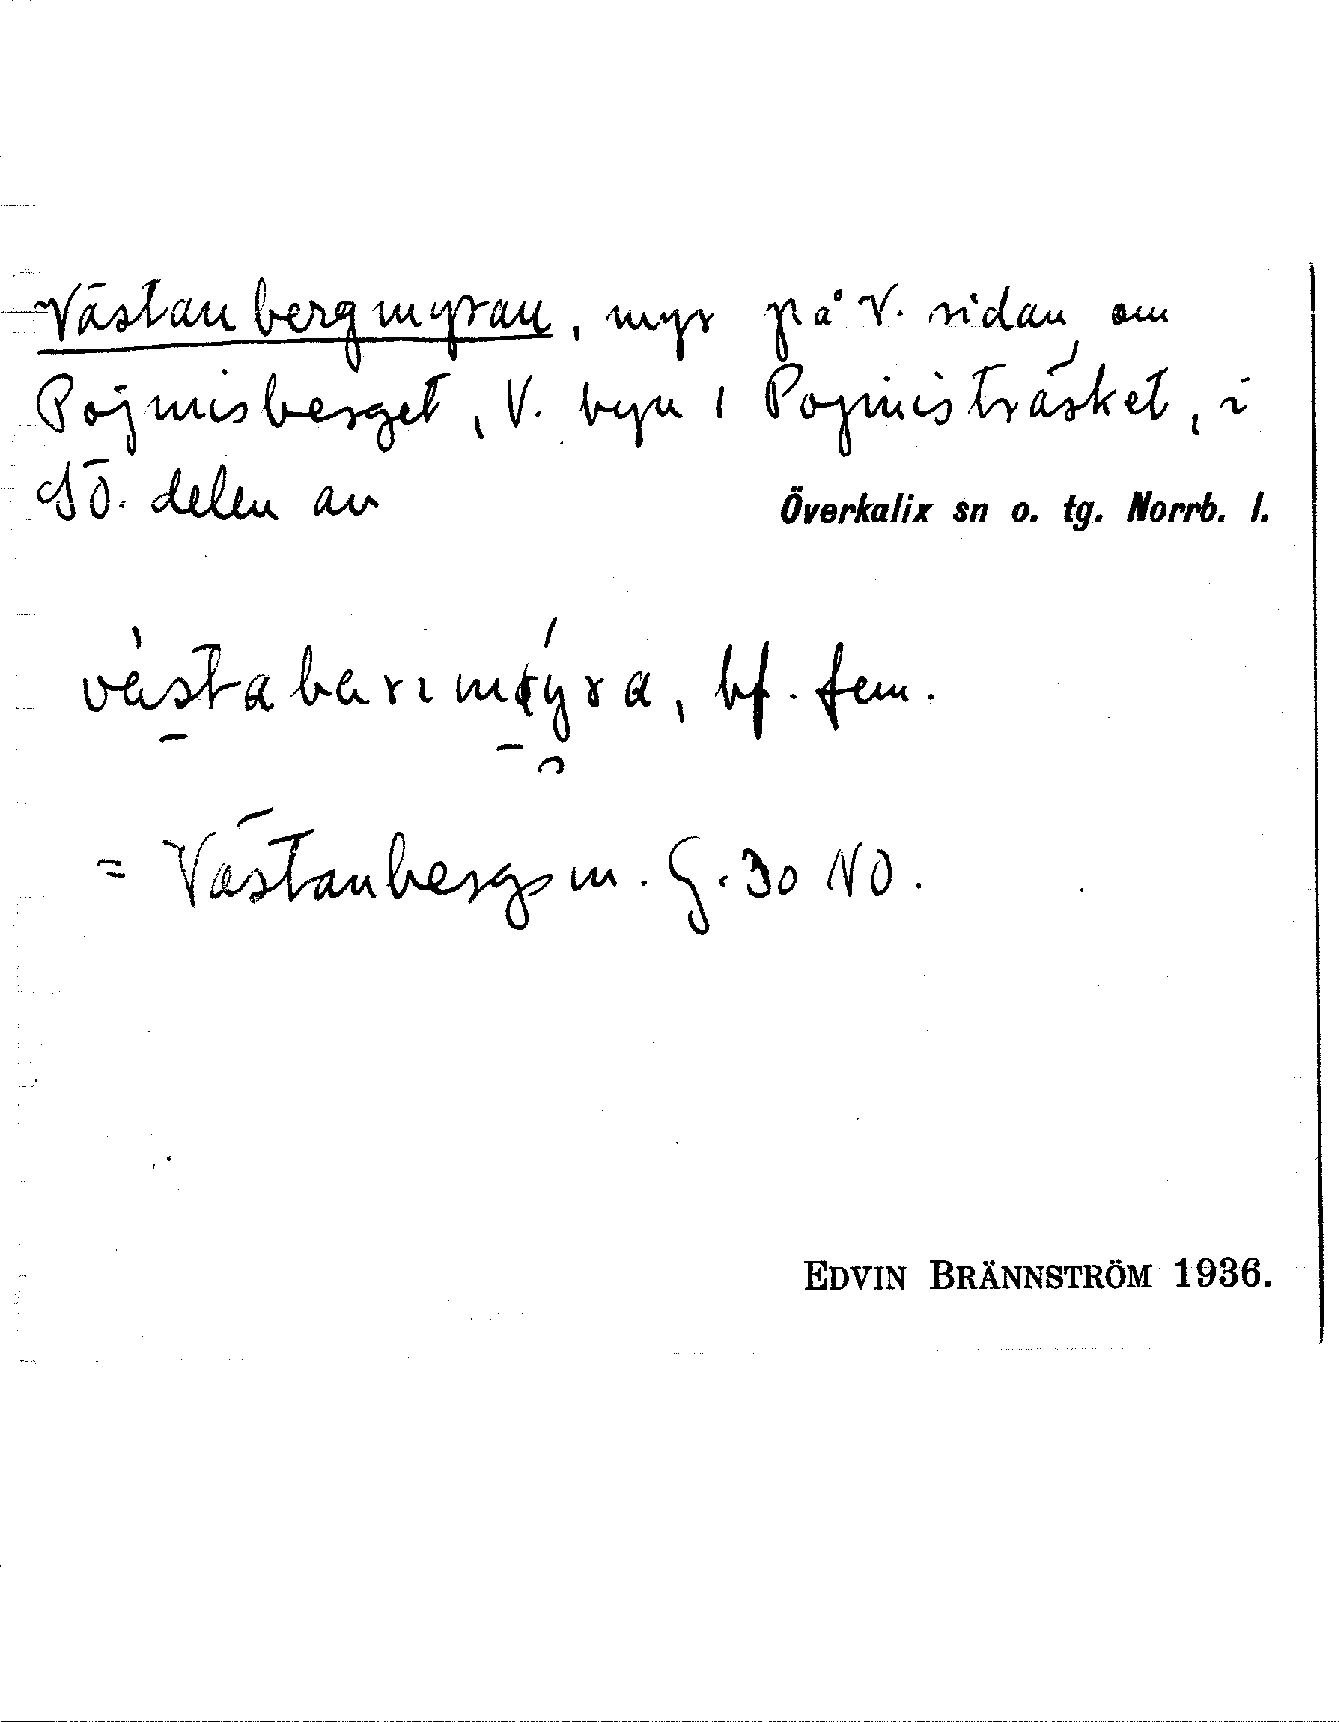 Västanbergmyran, myr på V. sidan om
Pojmisberget, V. byn i Pojmisträsket, i
SÖ. delen av Överkalix sn o. tg. Norrb. l.
bf. fem.
= Västanbergsm. G. 30 NO.
EDVIN BRÄNNSTRÖM 1936.